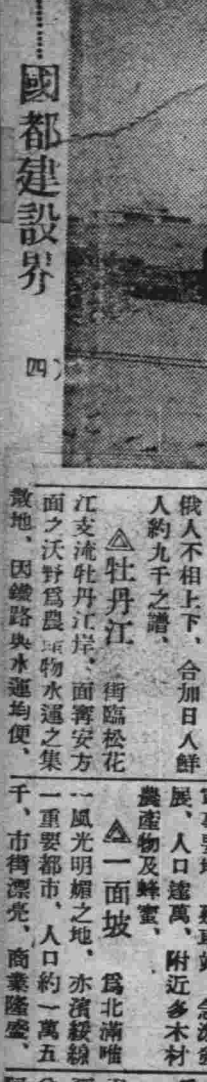 國都建設界 (四)
俄人不相上下、合加日人鮮
人約九千之譜、
◬牡丹江 街臨松花
江支流牡丹江岸、面寗安方
面之沃野爲農產物水運之集
散地、因鐵路與水運均便、
展、人口達萬、附近多木材
農產物及蜂蜜、
◬一面坡 爲北滿唯
一風光明媚之地、亦濱綏線
一重要都市、人口約一萬五
千、市街漂亮、商業隆盛、